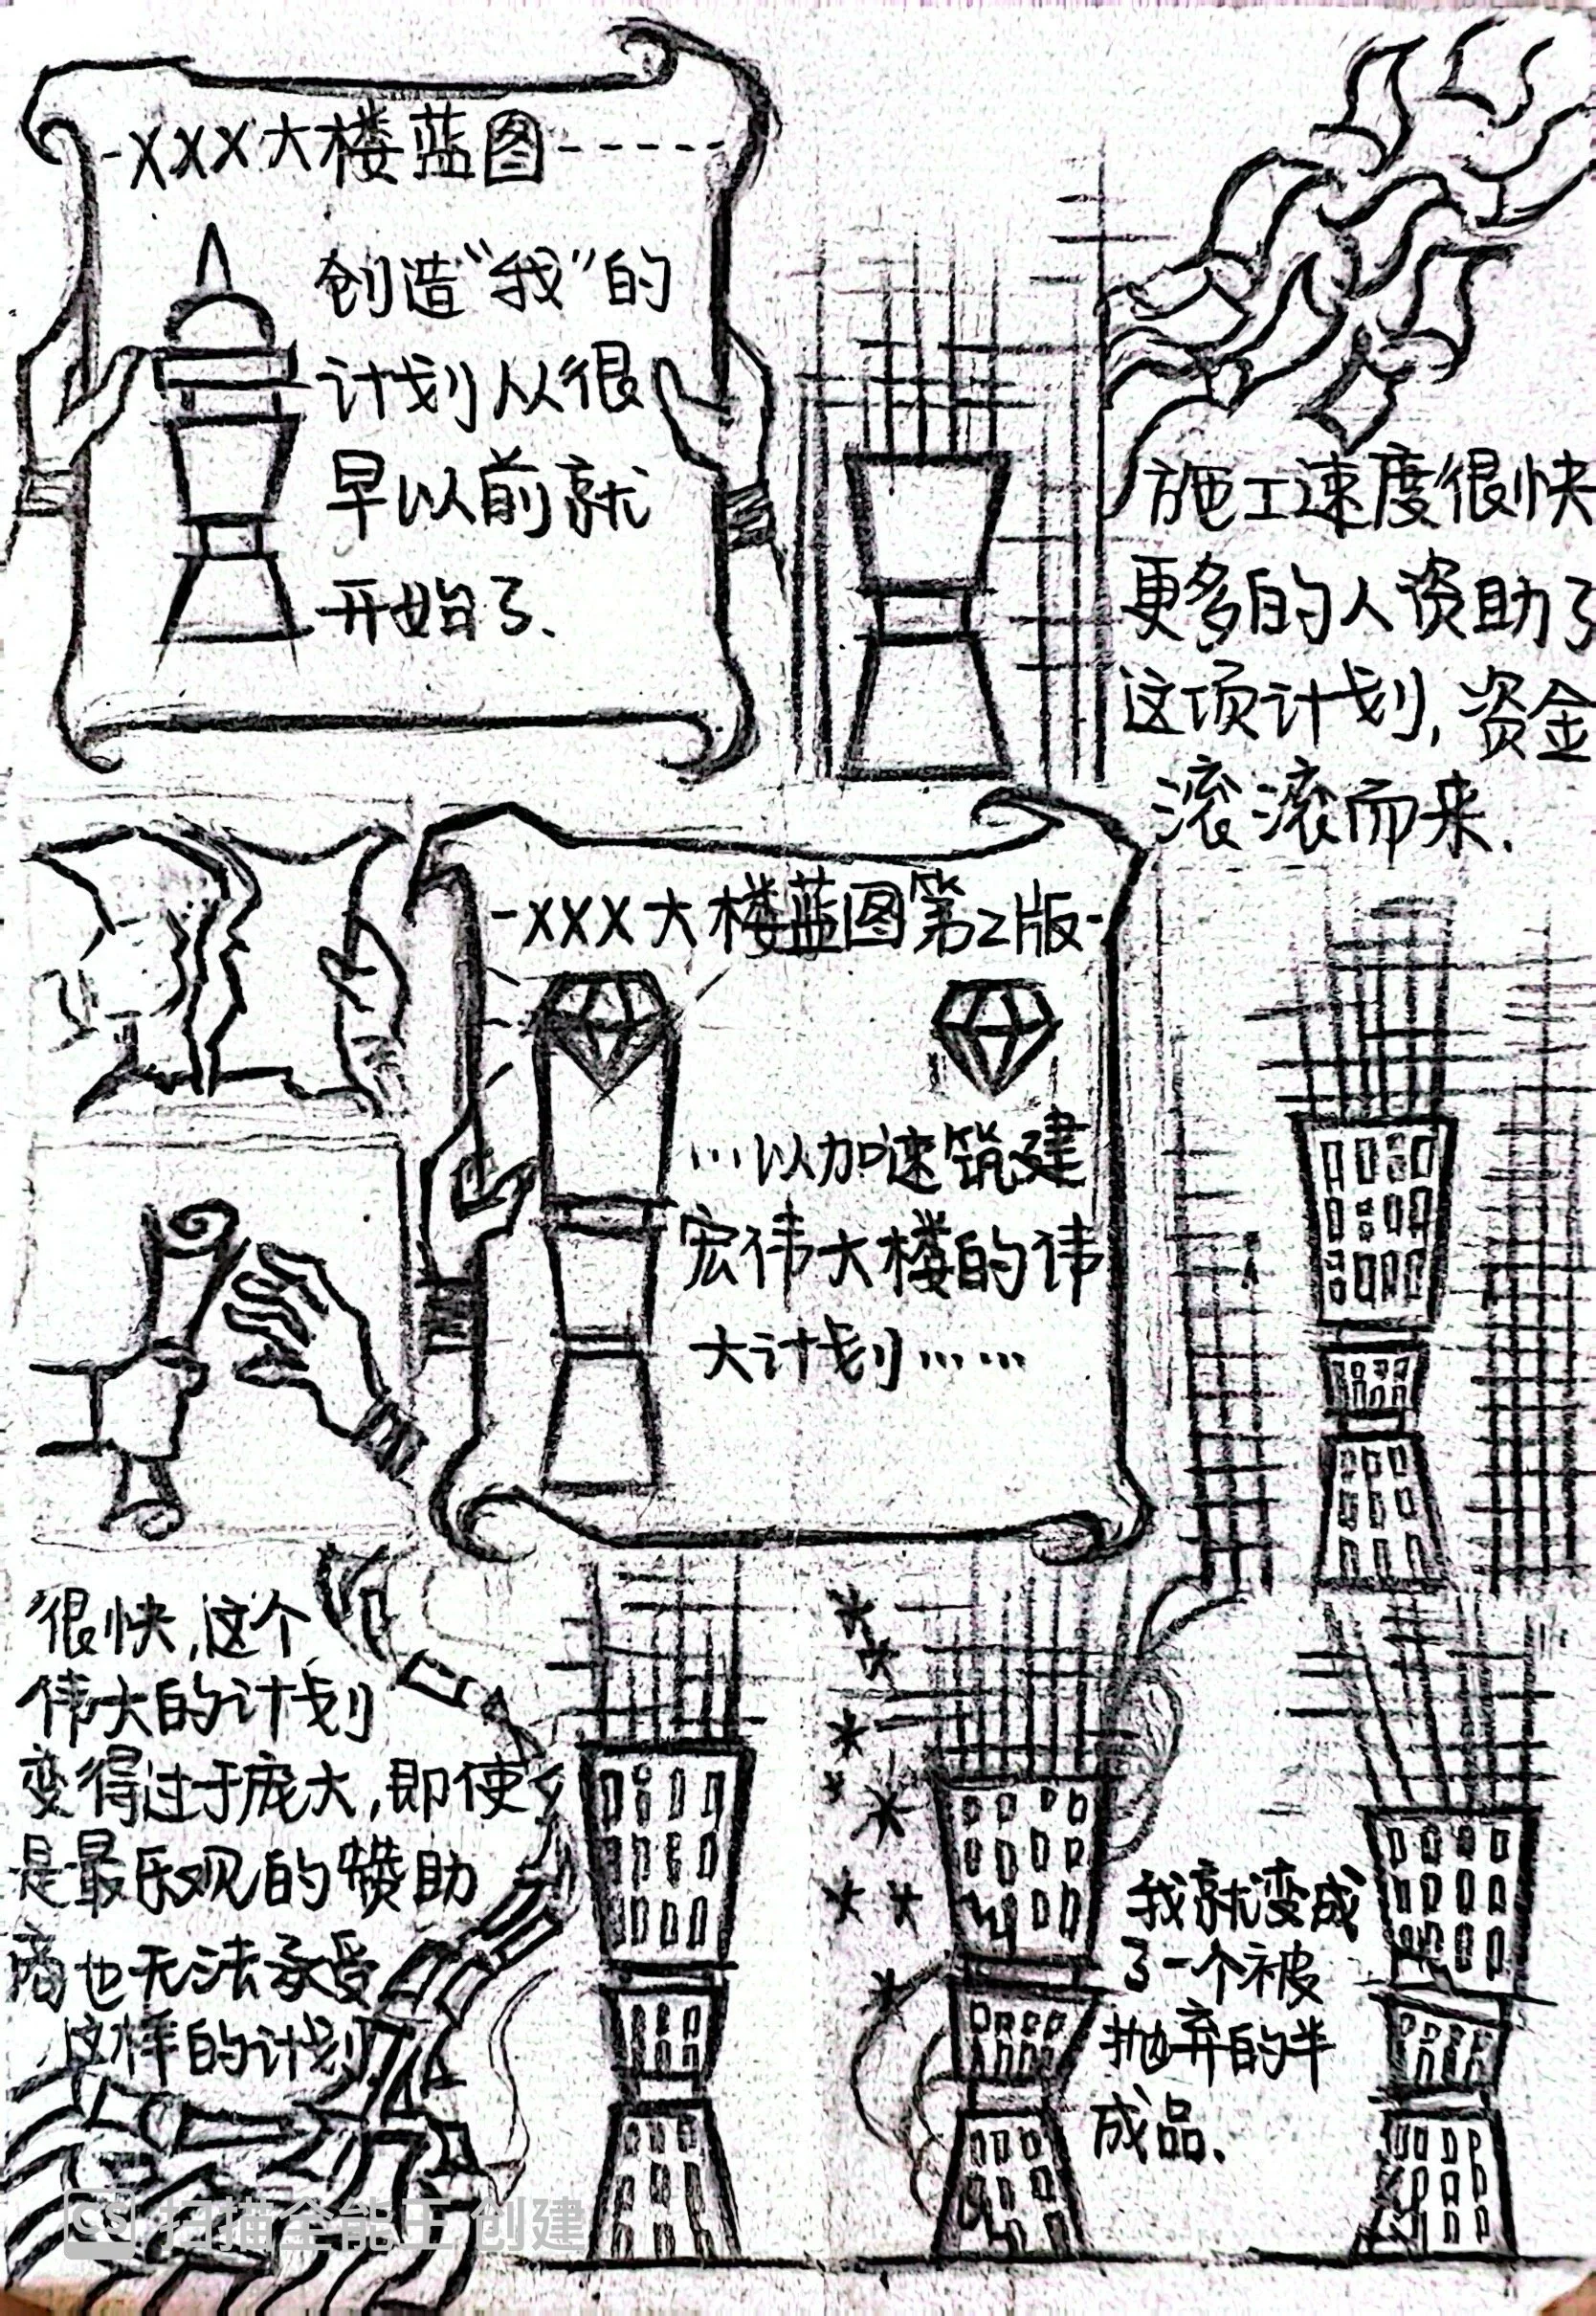 -XXX大楼蓝图-----
创造“我”的
计划从很
早以前就
开始了.
施工速度很快
更多的人资助了
这项计划,资金
滚滚而来.
-XXX大楼蓝图第2版-
...以加速筑建
宏伟大楼的伟
大计划……
很快,这个
伟大的计划
变得过于庞大,即使
是最乐观的赞助
商也无法承受
这样的计划
我就变成
了一个被
抛弃的半
成品.
CS 扫描全能王 创建